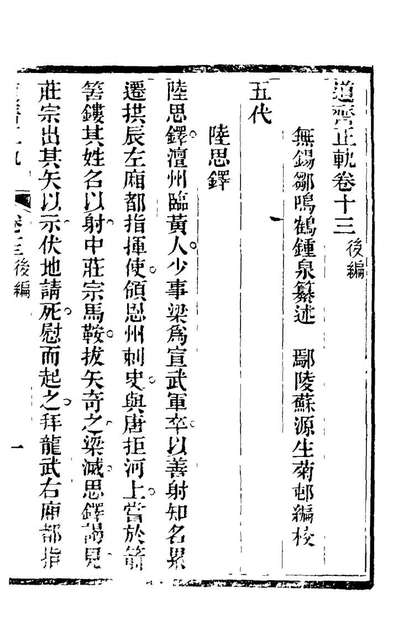 道齊正軌卷十三 後編
無錫鄒鳴鶴鍾泉纂述 鄢陵蘇源生菊邨編校
五代
陸思鐸
陸思鐸澶州臨黃人少事梁爲宣武軍卒以善射知名累
遷拱辰左廂都指揮使領恩州刺史與唐拒河上嘗於箭
筈鏤其姓名以射中莊宗馬鞍拔矢奇之梁滅思鐸謁見
莊宗出其矢以示伏地請死慰而起之拜龍武右廂都指
後編
一